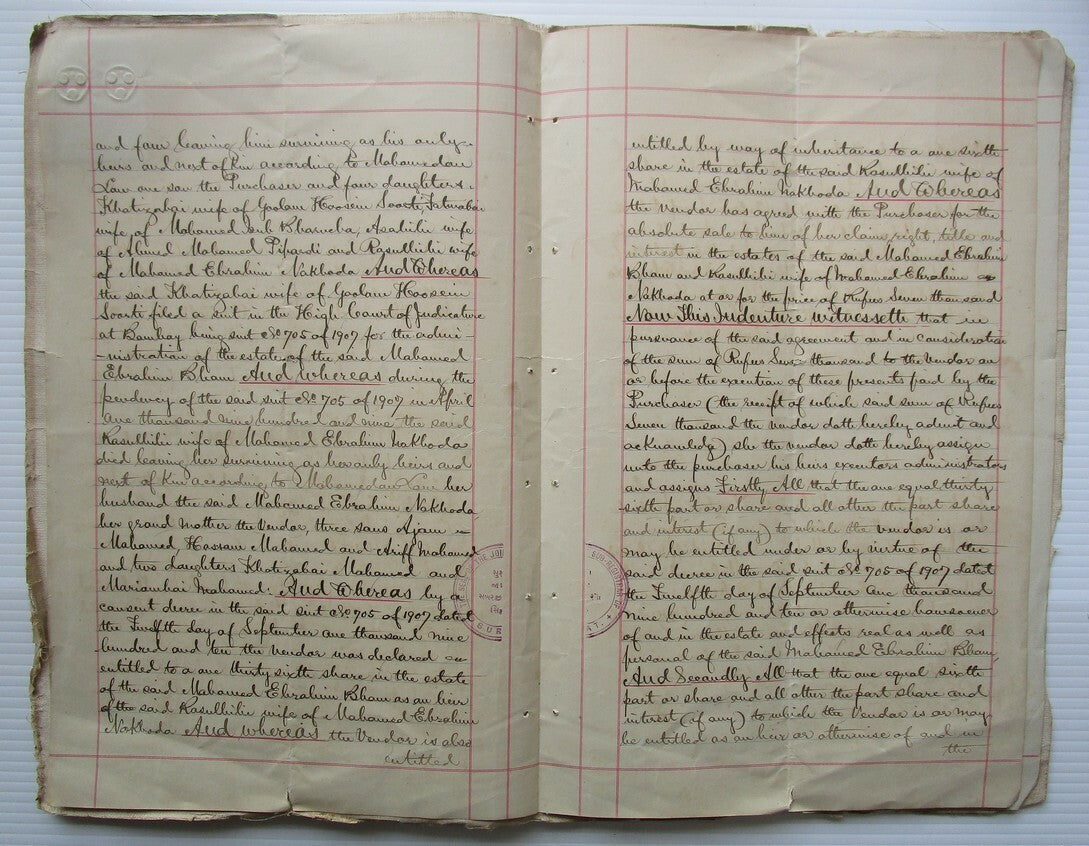 and four leaving him surviving as his only
heirs and next of kin according to Mahomedan
Law one son the Purchaser and four daughters
Khatizabai wife of Goolam Hoosein Soorti, Fatmabai
wife of Mahomed Bharucha, Asabibi wife
of Ahmed Mahomed Pipardi and Rasulbibi wife
of Mahamed Ebrahim Nakhoda And Whereas
the said Khatizabai wife of Goolam Hoosein
Soorti filed a suit in the High Court of Judicature
at Bombay being suit No 705 of 1907 for the admi-
-nistration of the estate of the said Mahamed
Ebrahim Bham And whereas during the
pendency of the said suit No. 705 of 1907 in April
one thousand nine hundred and nine the said
Rasulbibi wife of Mahamed Ebrahim Nakhoda
died leaving her surviving as her only heirs and
next of kin according to Mahomedan Law her
husband the said Mahamed Ebrahim Nakhoda,
her grand mother the Vendor, three sons Ajam
Mahamed, Hassam Mahamed and Ariff Mahamed
and two daughters Khatizabai Mahamed and
Mariambai Mahamed. And Whereas by a
consent decree in the said suit No. 705 of 1907 dated
the Twelfth day of September one thousand nine
hundred and ten the Vendor was declared
entitled to a one thirty sixth share in the estate
of the said Mahamed Ebrahim Bham as an heir
of the said Rasulbibi wife of Mahamed Ebrahim
Nakhoda And whereas the Vendor is also
entitled
entitled by way of inheritance to a one sixth
share in the estate of the said Rasulbibi wife of
Mahamed Ebrahim Nakhoda And Whereas
the vendor has agreed with the Purchaser for the
absolute sale to him of her claim, right, title and
interest in the estates of the said Mahamed Ebrahim
Bham and Rasulbibi wife of Mahamed Ebrahim
Nakhoda at or for the price of Rupees Seven thousand
Now This Indenture witnesseth that in
pursuance of the said agreement and in consideration
of the sum of Rupees Seven thousand to the Vendor on
or before the execution of these presents paid by the
Purchaser (the receipt of which said sum of Rupees
Seven thousand the vendor doth hereby admit and
acknowledge) she the vendor doth hereby assign
unto the purchaser his heirs executors administrators
and assigns Firstly All that the one equal thirty
sixth part or share and all other the part share
and interest (if any) to which the vendor is or
may be entitled under or by virtue of the
said decree in the said suit No. 705 of 1907 dated
the Twelfth day of September one thousand
nine hundred and ten or otherwise howsoever
of and in the estate and effects real as well as
personal of the said Mahamed Ebrahim Bham,
And Secondly All that the one equal sixth
part or share and all other the part share and
interest (if any) to which the Vendor is or may
be entitled as an heir or otherwise of and in
the